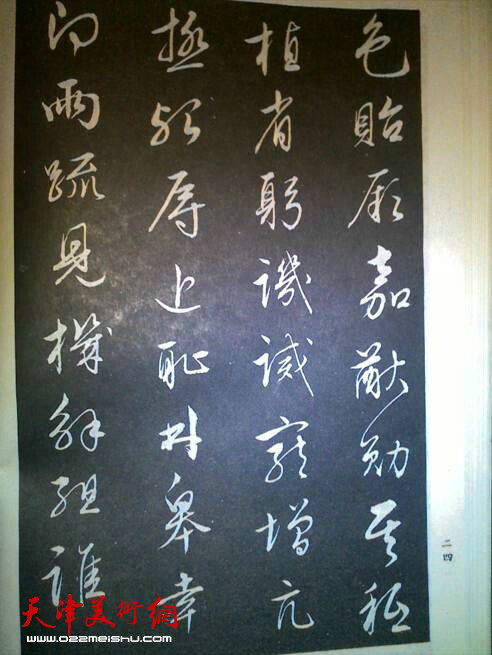 色貽厥嘉猷勉其祗
植省躬譏誡寵增亢
極殆辱近耻林皋幸
即兩疏見機解組誰
二四
天津美術網
www.022meishu.com